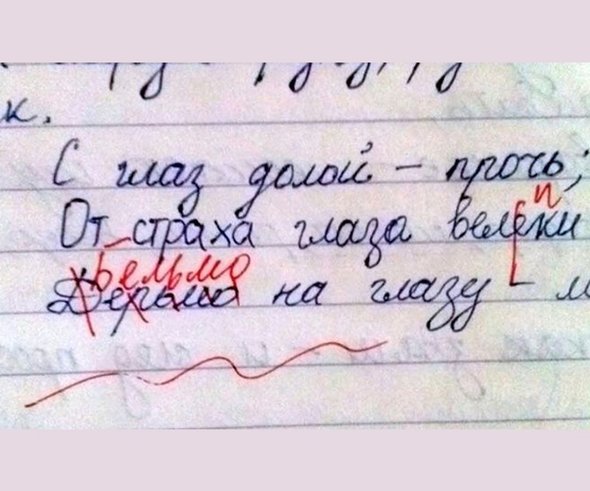 к.
С глаз долой – прочь;
От страха глаза велеки
п
бельмо
Дерьмо на глазу –